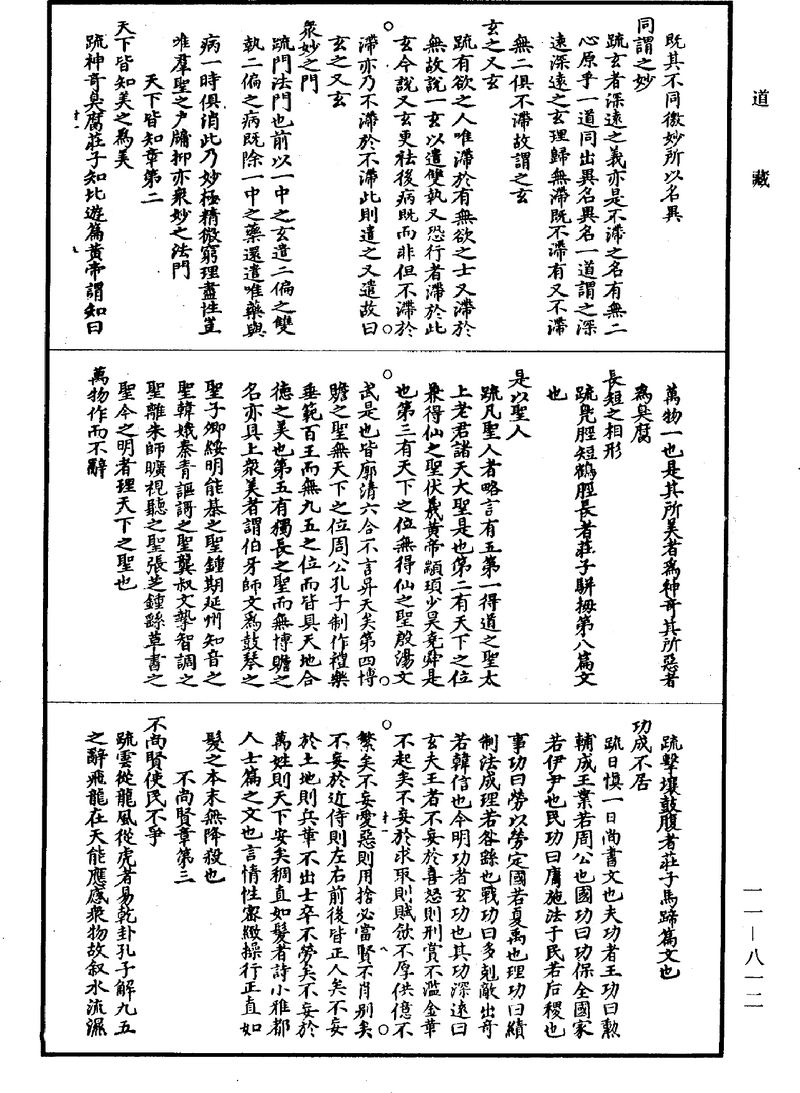 道藏
既其不同徼妙所以名異
同謂之妙
疏玄者深遠之義亦是不滯之名有無二
心原乎一道同出異名異名一道謂之深
遠深遠之玄理歸無滯既不滯有又不滯
無二俱不滯故謂之玄
玄之又玄
疏有欲之人唯滯於有無欲之士又滯於
無故說一玄以遣雙執又恐行者滯於此
玄今說又玄更祛後病既而非但不滯於
滯亦乃不滯於不滯此則遣之又遣故曰
玄之又玄
衆妙之門
疏門法門也前以一中之玄遣二偏之雙
執二偏之病既除一中之藥還遣唯藥與
病一時俱消此乃妙極精微窮理盡性豈
唯羣聖之戶牖抑亦衆妙之法門
天下皆知章第二
天下皆知美之爲美
疏神奇臭腐莊子知北遊篇黃帝謂知曰
萬物一也是其所美者爲神奇其所惡者
爲臭腐
長短之相形
疏鳧脛短鶴脛長者莊子駢拇第八篇文
也
是以聖人
疏凡聖人者略言有五第一得道之聖太
上老君諸天大聖是也第二有天下之位
兼得仙之聖伏羲黃帝顓頊少昊堯舜是
也第三有天下之位無得仙之聖殷湯文
武是也皆廓清六合不言昇天矣第四博
贍之聖無天下之位周公孔子制作禮樂
垂範百王而無九五之位而皆具天地合
德之美也第五有獨長之聖而無博贍之
名亦具上衆美者謂伯牙師文爲鼓琴之
聖子卿綏明能棊之聖鍾期延州知音之
聖韓娥秦青謳謌之聖龔叔文摯智調之
聖離朱師曠視聽之聖張芝鍾繇草書之
聖令之明者理天下之聖也
萬物作而不辭
疏擊壤鼓腹者莊子馬蹄篇文也
功成不居
疏日慎一日尚書文也夫功者王功曰勲
輔成王業若周公也國功曰功保全國家
若伊尹也民功曰庸施法于民若后稷也
事功曰勞以勞定國若夏禹也理功曰績
制法成理若咎繇也戰功曰多剋敵出奇
若韓信也今明功者玄功也其功深遠曰
玄夫王者不妄於喜怒則刑賞不濫金華
不起矣不妄於求取則賦斂不厚供億不
繁矣不妄愛惡則用捨必當賢不肖別矣
不妄於近侍則左右前後皆正人矣不妄
於土地則兵革不出士卒不勞矣不妄於
萬姓則天下安矣稠直如髮者詩小雅都
人士篇之文也言情性密緻操行正直如
髮之本末無降殺也
不尚賢章第三
不尚賢使民不爭
疏雲從龍風從虎者易乾卦孔子解九五
之辭飛龍在天能應感衆物故叙水流濕
一一—八一二